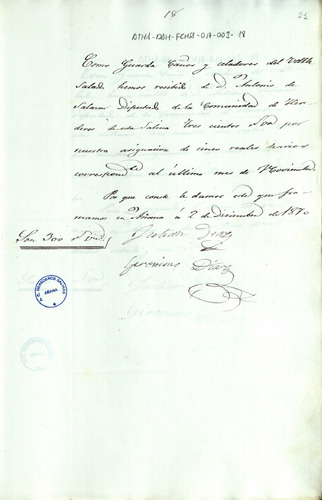 18
21
ATHA-DAH-FCHSA-017-002-18
Como Guarda Caños y celadores del Valle
Salado hemos recibido de D. Antonio de
Salazar Diputado de la Comunidad de Here
deros de esta Salina Tres cientos Rvn por
nuestra asignacion de cinco reales diarios
correspondte al último mes de Noviembre
Para que conste le damos este que fir
mamos en Añana a 2 de diciembre de 1870
Son 300 rs vn
Julian Diaz
Geronimo Diaz
AÑANA